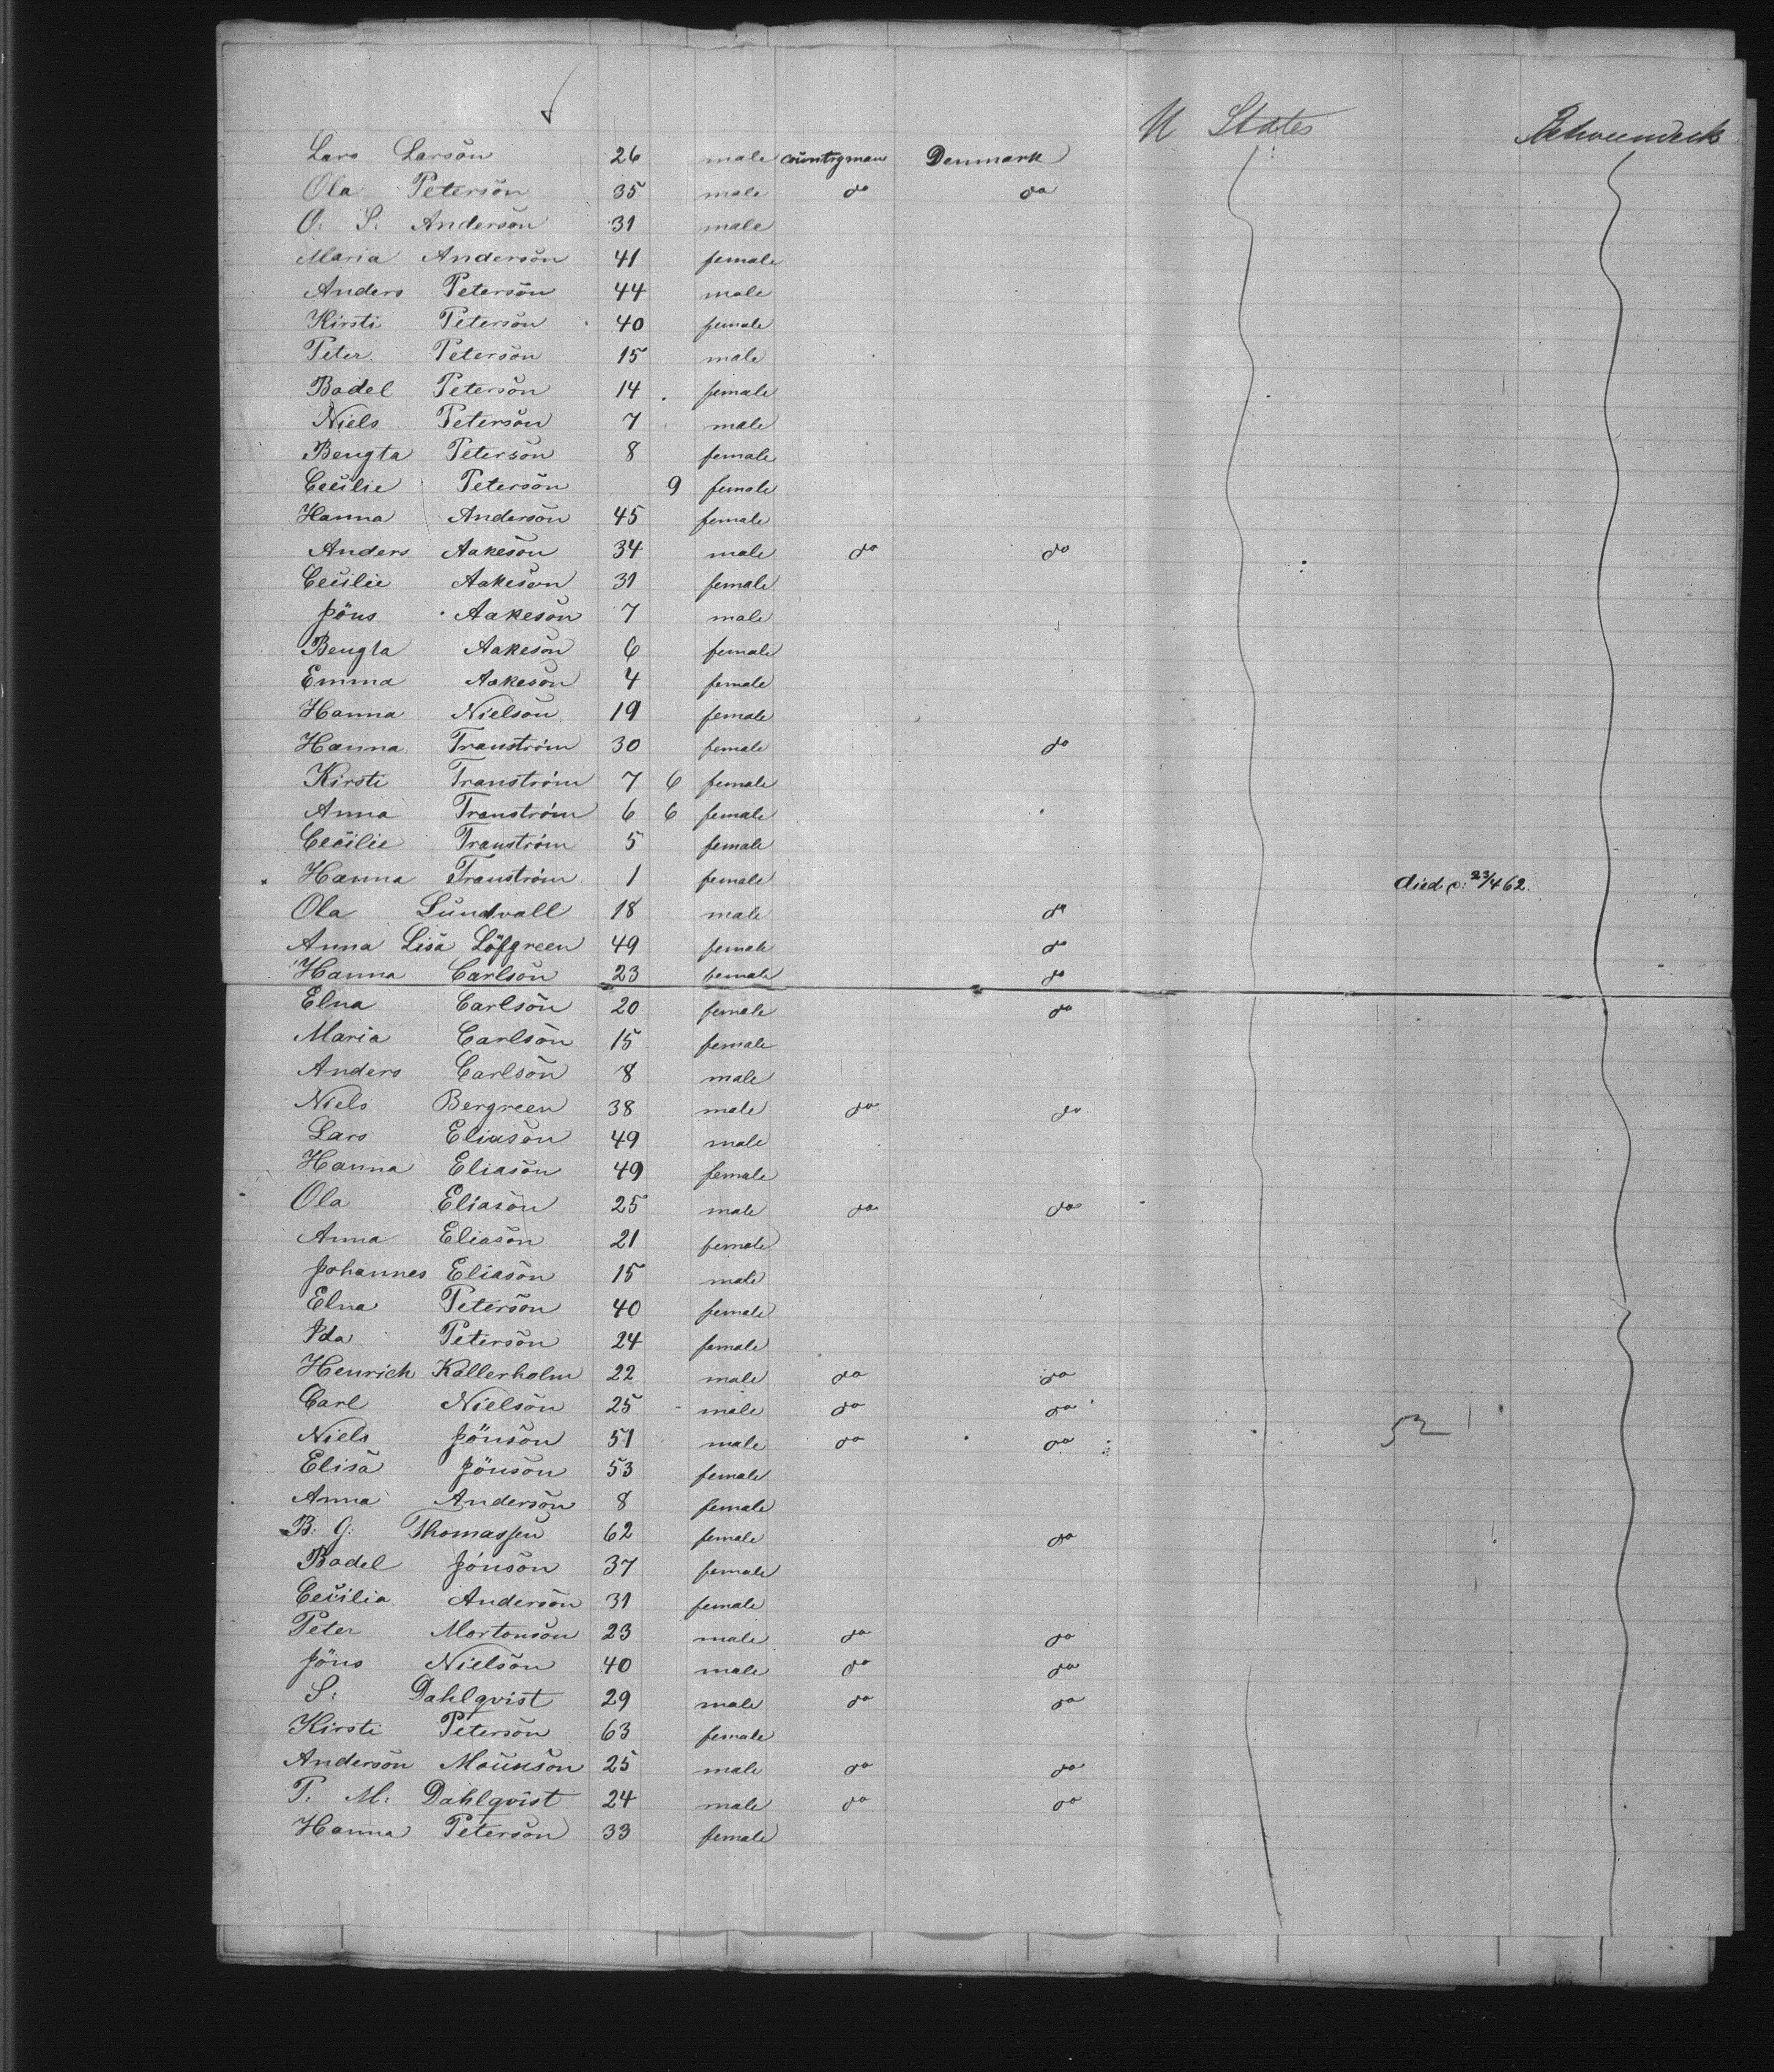 U States
Lars Larson 26 male countryman Denmark
Ola Peterson 35 male do do
O. S. Anderson 31 male
Maria Anderson 41 female
Anders Peterson 44 male
Kirsti Peterson 40 female
Peter Peterson 15 male
Bodel Peterson 14 female
Niels Peterson 7 male
Bengta Peterson 8 female
Cecilie Peterson 9 female
Hanna Anderson 45 female
Anders Aakeson 34 male do do
Cecilie Aakeson 31 female
Jöns Aakeson 7 male
Bengta Aakeson 6 female
Emma Aakeson 4 female
Hanna Nielson 19 female
Hanna Tranström 30 female do
Kirsti Tranström 7 6 female
Anna Tranström 6 6 female
Cecilie Tranström 5 female
Hanna Tranström 1 female died 23/4 62.
Ola Lundvall 18 male do
Anna Lisa Löfgreen 49 female do
Hanna Carlson 23 female do
Elna Carlson 20 female do
Maria Carlson 15 female
Anders Carlson 8 male
Niels Bergreen 38 male do do
Lars Eliason 49 male
Hanna Eliason 49 female
Ola Eliason 25 male do do
Anna Eliason 21 female
Johannes Eliason 15 male
Elna Peterson 40 female
Ida Peterson 24 female
Henrich Kallerholm 22 male do do
Carl Nielson 25 male do do
Niels Jönson 51 male do do 52
Elisa Jönson 53 female
Anna Anderson 8 female
B: G: Thomassen 62 female do
Bodel Jönson 37 female
Cecilia Anderson 31 female
Peter Mortonson 23 male do do
Jöns Nielson 40 male do do
S: Dahlqvist 29 male do do
Kirsti Peterson 63 female
Anderson Mounson 25 male do do
P. M: Dahlqvist 24 male do do
Hanna Peterson 33 female